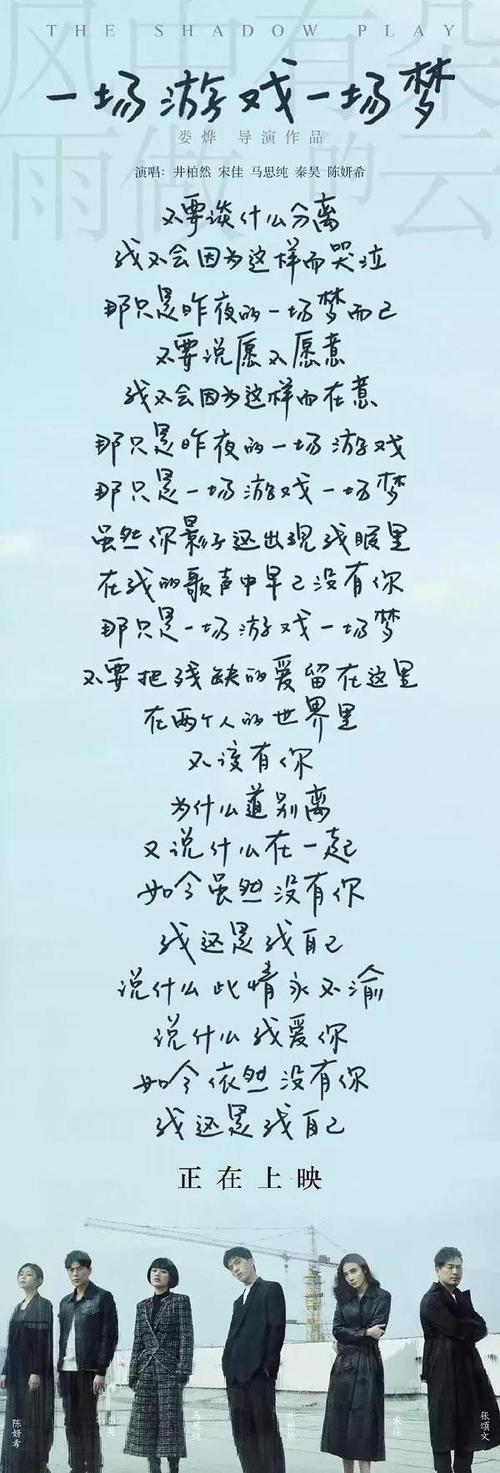 THE SHADOW PLAY
风中有朵
雨做的云
一场游戏一场梦
娄烨 导演作品
演唱：井柏然 宋佳 马思纯 秦昊 陈妍希
不要谈什么分离
我不会因为这样而哭泣
那只是昨夜的一场梦而已
不要说愿不愿意
我不会因为这样而在意
那只是昨夜的一场游戏
那只是一场游戏一场梦
虽然你影子还出现我眼里
在我的歌声中早已没有你
那只是一场游戏一场梦
不要把残缺的爱留在这里
在两个人的世界里
不该有你
为什么道别离
又说什么在一起
如今虽然没有你
我还是我自己
说什么此情永不渝
说什么我爱你
如今依然没有你
我还是我自己
正在上映
陈妍希
宋佳
张颂文